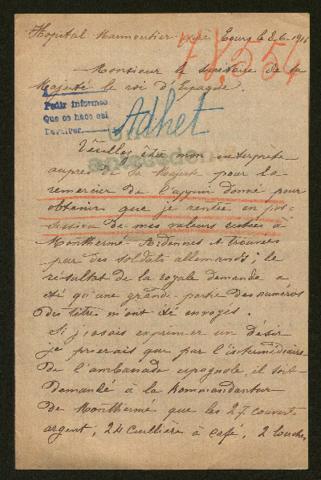 Hopital Marmoutier près Tours le 8-6-1916
78.554
Monsieur le Secrétaire de sa
Majesté le roi d'Espagne.
Pedir informes
Que se hace así
Adhet
Veuillez être mon interprète
auprès de sa Majesté pour la
remercier de l'appui donné pour
obtenir que je rentre en pos-
session de mes valeurs restées à
Monthermé - Ardennes et trouvées
par des soldats allemands; le
résultat de la royale demande a
été qu'une grande partie des numéros
des titres m'ont été envoyés.
Si j'osais exprimer un désir
je prierais que par l'intermédiaire
de l'ambassade espagnole, il soit
demandé à la Kommandantur
de Monthermé que les 27 couverts
argent, 24 cuillière à café, 2 louches,